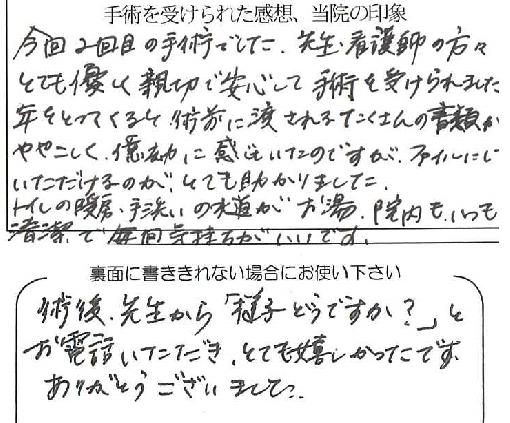 手術を受けられた感想、当院の印象
今回2回目の手術でした。先生、看護師の方々
とても優しく親切で安心して手術を受けられました
年をとってくると術前に渡されるたくさんの書類が
ややこしく、億劫に感じていたのですが、ファイルにして
いただけるのがとても助かりました。
トイレの暖房、手洗いの水道がお湯、院内もいつも
清潔で毎回気持ちがいいです。
裏面に書ききれない場合にお使い下さい
術後、先生から「様子どうですか?」と
お電話いただき、とても嬉しかったです
ありがとうございました。